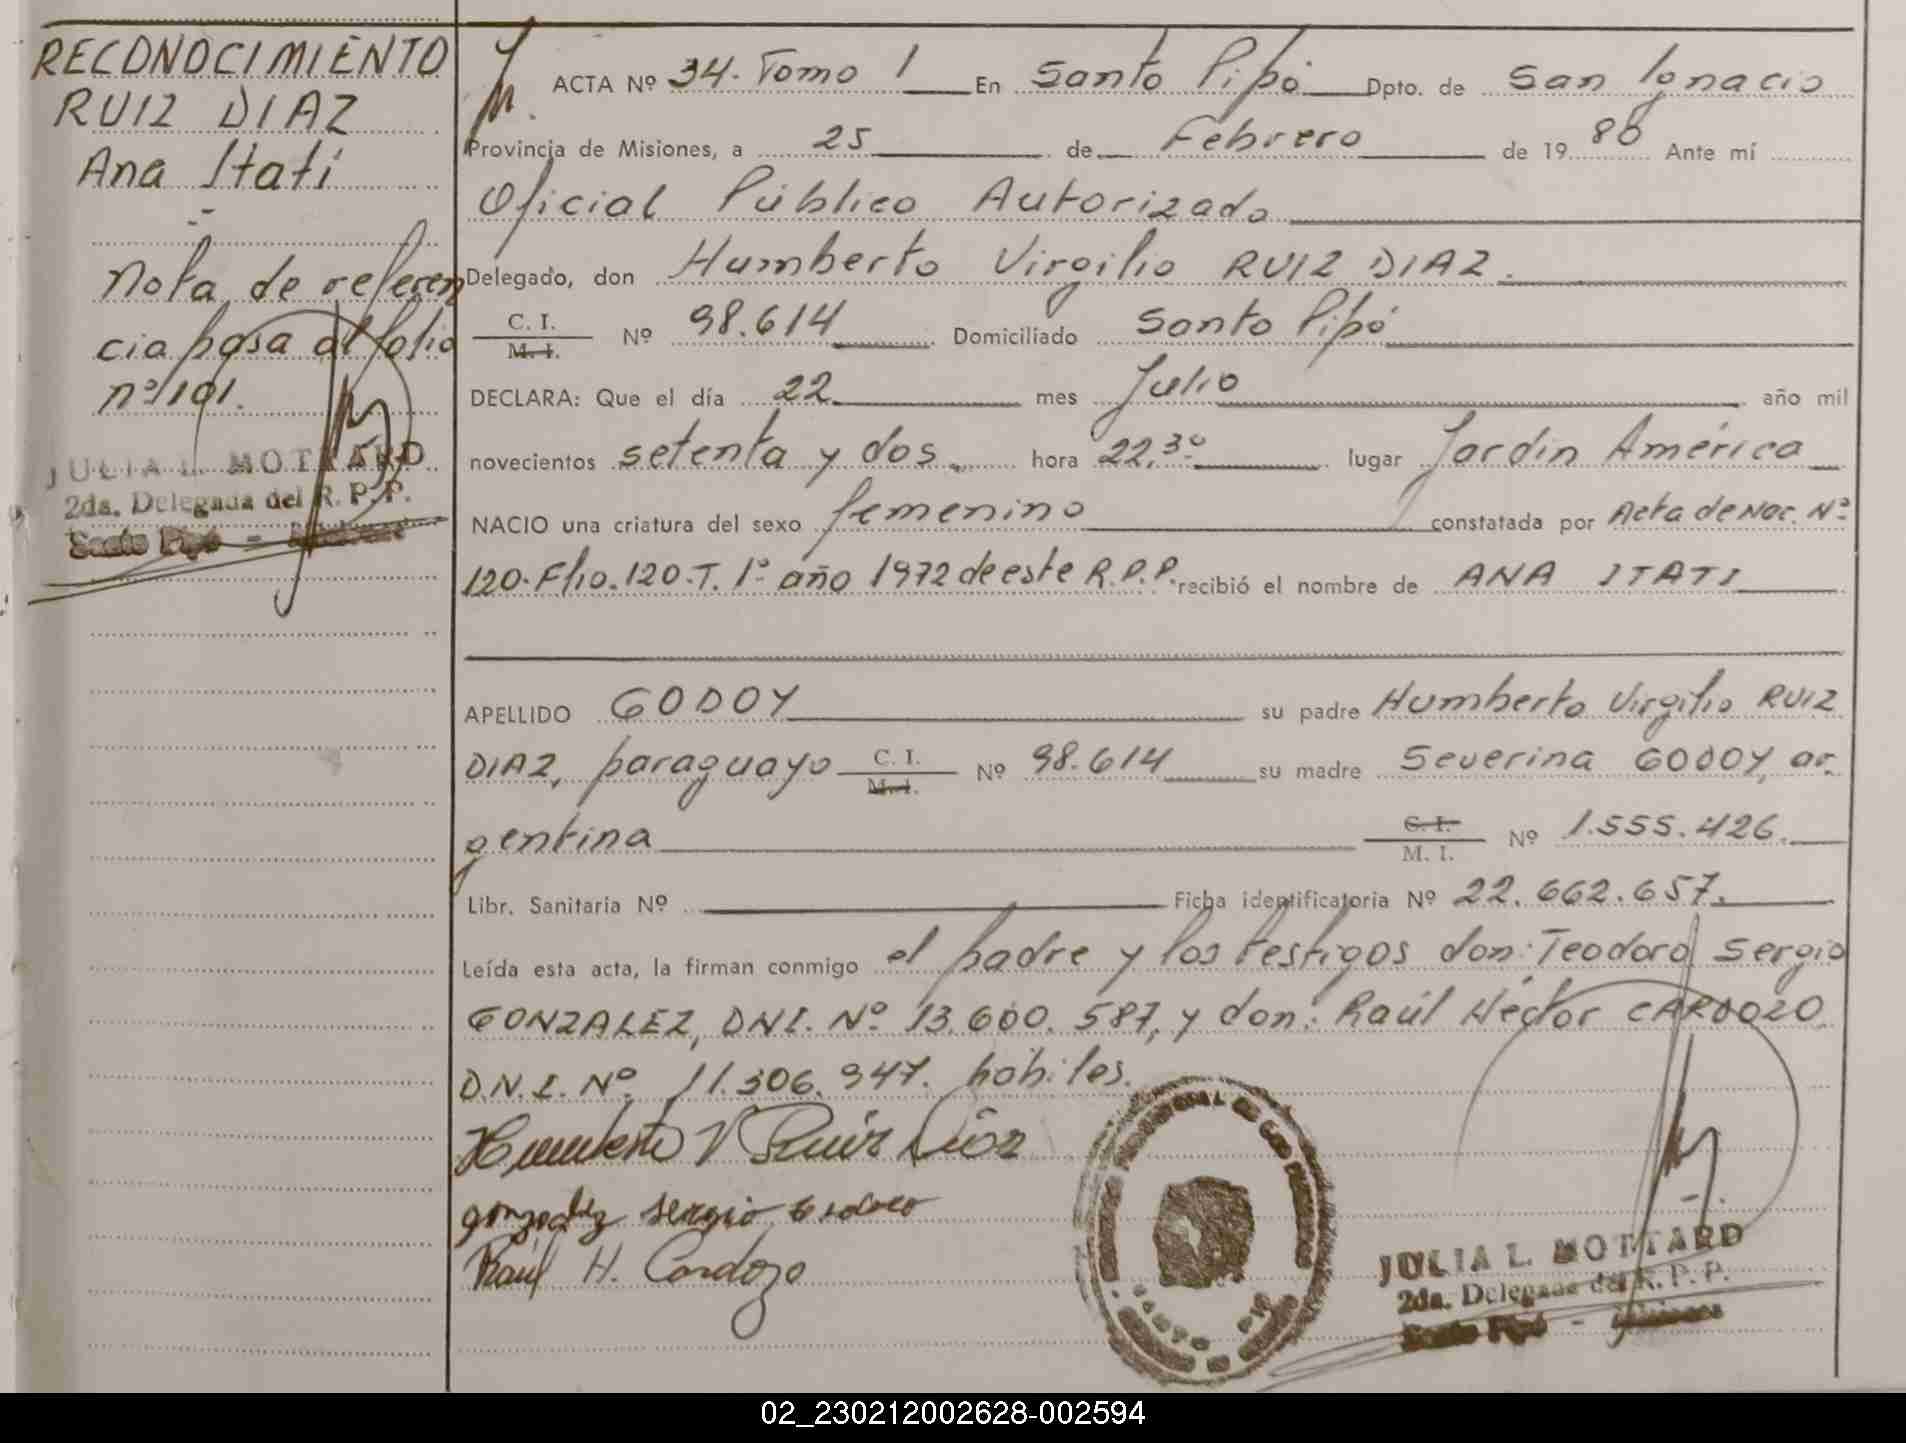 RECONOCIMIENTO
RUIZ DIAZ
Ana Itatí
Nota de referen
cia pasa al folio
nº 101.
JULIA L. MOTTARD
2da. Delegada del R. P. P.
Santo Pipó -
ACTA Nº 34. Tomo 1 En Santo Pipó Dpto. de San Ignacio
Provincia de Misiones, a 25 de Febrero de 19 80 Ante mí
Oficial Público Autorizado
Delegado, don Humberto Virgilio RUIZ DIAZ.
C. I.
M. I. Nº 98.614 Domiciliado Santo Pipó
DECLARA: Que el día 22 mes Julio año mil
novecientos setenta y dos. hora 22,30 lugar Jardín América
NACIO una criatura del sexo femenino constatada por Acta de Nac. Nº
120. Flio. 120. T. 1º año 1972 de este R.P.P. recibió el nombre de ANA ITATI
APELLIDO GODOY su padre Humberto Virgilio RUIZ
DIAZ, paraguayo C. I. M. I. Nº 98.614 su madre Severina GODOY, ar.
gentina C. I. M. I. Nº 1.555.426.
Libr. Sanitaria Nº Ficha identificatoria Nº 22.662.657.
Leída esta acta, la firman conmigo el padre y los testigos don: Teodoro Sergio
GONZALEZ, DNI. Nº 13.600.587, y don: Raúl Héctor CARDOZO
D.N.I. Nº 11.306.947. hábiles.
Humberto V Ruiz Diaz
gonzalez sergio teodoro
Raúl H. Cardozo
SANTO PIPO
JULIA L. MOTTARD
2da. Delegada del R. P. P.
Santo Pipó - Misiones
02_230212002628-002594